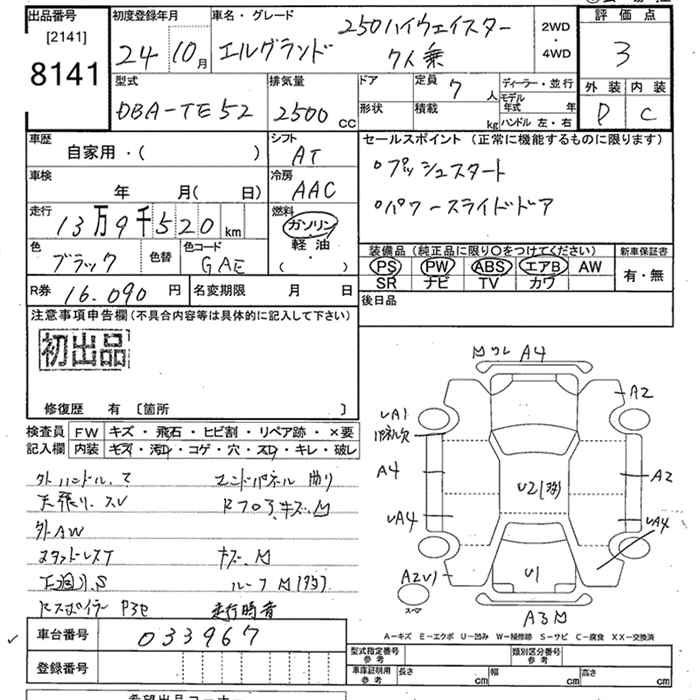 出品番号
[2141]
8141
初度登録年月
24 10月
車名・グレード
250ハイウェイスター
エルグランド 7人乗
2WD
・
4WD
評価点
3
外装 内装
D C
型式
DBA-TE52
排気量
2500 cc
ドア
形状
定員 7 人
積載 kg
ディーラー・並行
モデル年式 年
ハンドル 左・右
車歴
自家用・( )
シフト
AT
セールスポイント (正常に機能するものに限ります)
○プッシュスタート
○パワースライドドア
車検
年 月( 日)
冷房
AAC
走行
13万9千520 km
燃料
ガソリン
・
軽油
( )
色
ブラック
色替
色コード
GAE
装備品 (純正品に限り○をつけてください)
PS PW ABS エアB AW
SR ナビ TV カワ
新車保証書
有・無
R券 16.090 円
名変期限 月 日
後日品
注意事項申告欄 (不具合内容等は具体的に記入して下さい)
初出品
修復歴 有 〔箇所 〕
検査員記入欄
FW キズ・飛石・ヒビ割・リペア跡・×要
内装 キズ・汚れ・コゲ・穴・スレ・キレ・破レ
外ハンドル.て
エンドパネル 曲り
天張り.スレ
外AW
スタッドレスT
キズ.M
下廻り.S
Rスポイラー P3セ
走行時音
Mワレ A4
A2
UA1
A4
A2
UA4
UA4
U2(多)
U1
A2U1
A3M
A－キズ E－エクボ U－凹み W－補修跡 S－サビ C－腐食 XX－交換済
車台番号 033967
登録番号
型式指定番号
参考
類別区分番号
参考
車庫証明用
参考
長さ cm
幅 cm
高さ cm
希望出品コーナー